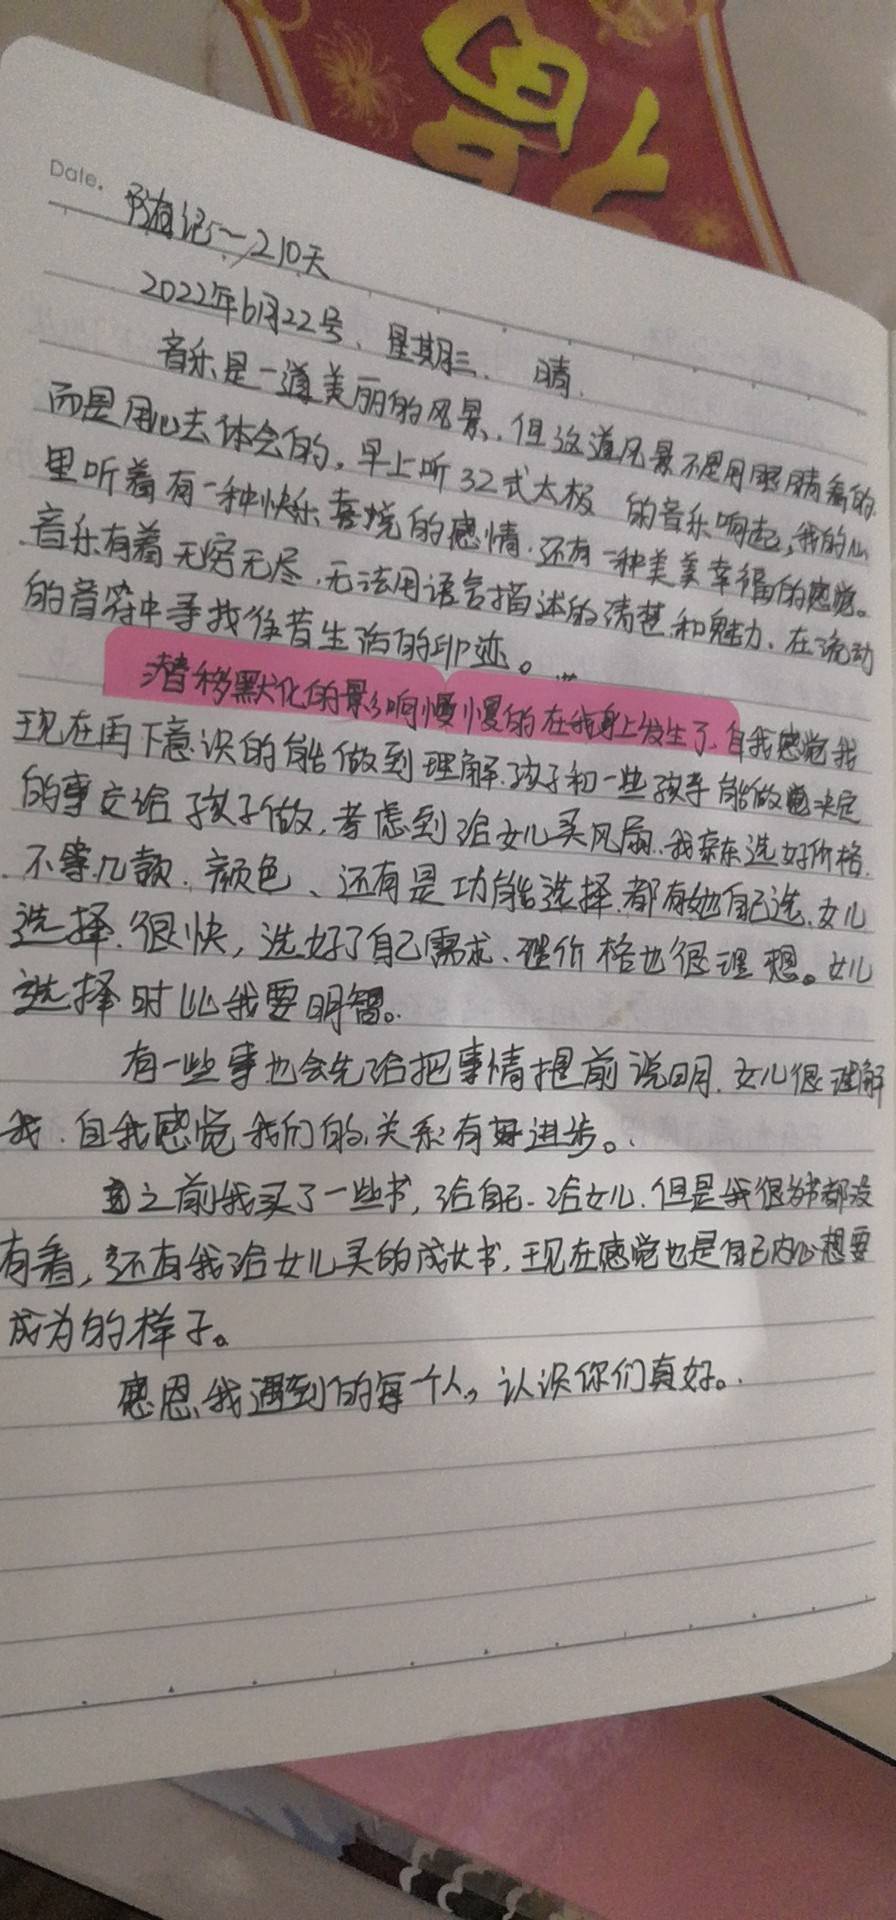 福
Date.
210天
2022年6月22号、星期三、 晴.
音乐是一道美丽的风景,但这道风景不是用眼睛看的
而是用心去体会的,早上听32式太极 的音乐响起,我的心
里听着有一种快乐喜悦的感情.还有一种美美幸福的感觉。
音乐有着无穷无尽.无法用语言描述的清楚和魅力、在流动
的音符中寻找往昔生活的印迹。
潜移默化的影响慢慢的在我身上发生了,自我感觉我
现在再下意识的能做到理解孩子和一些孩子能做 决定
的事交给孩子做,考虑到给女儿买风扇、我京东选好价格
不等几款、颜色、还有是功能选择.都有她自己选、女儿
选择.很快,选好了自己需求、 价格也很理想。女儿
选择时比我要明智。
有一些事也会先给把事情提前说明.女儿很理解
我.自我感觉我们的关系有好进步。
之前我买了一些书,给自己.给女儿.但是我很多书都没
有看,还有我给女儿买的成长书,现在感觉也是自己内心想要
成为的样子。
感恩我遇到的每个人,认识你们真好。